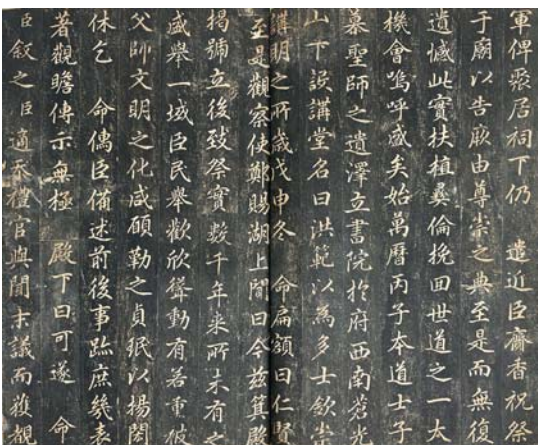 軍俾衆居祠下仍 遣近臣齎香祝祭
于廟以告厥由尊崇之典至是而無復
遺憾此實扶植彝倫挽回世道之一大
機會嗚呼盛矣始萬曆丙子本道士子
慕聖師之遺澤立書院於府西南蒼光
山下設講堂名曰洪範以為多士欽崇
講明之所歲戊申冬 命扁額曰仁賢
至是觀察使鄭賜湖上聞曰今茲箕殿
揭號立後致祭實數千年来所未有之
盛舉一域臣民舉歡欣聳動有若重被
父師文明之化咸願勒之貞珉以揚閎
休乞 命儒臣備述前後事跡庶幾表
著觀瞻傳示無極 殿下曰可遂 命
臣叙之臣適忝禮官與聞末議而獲覩